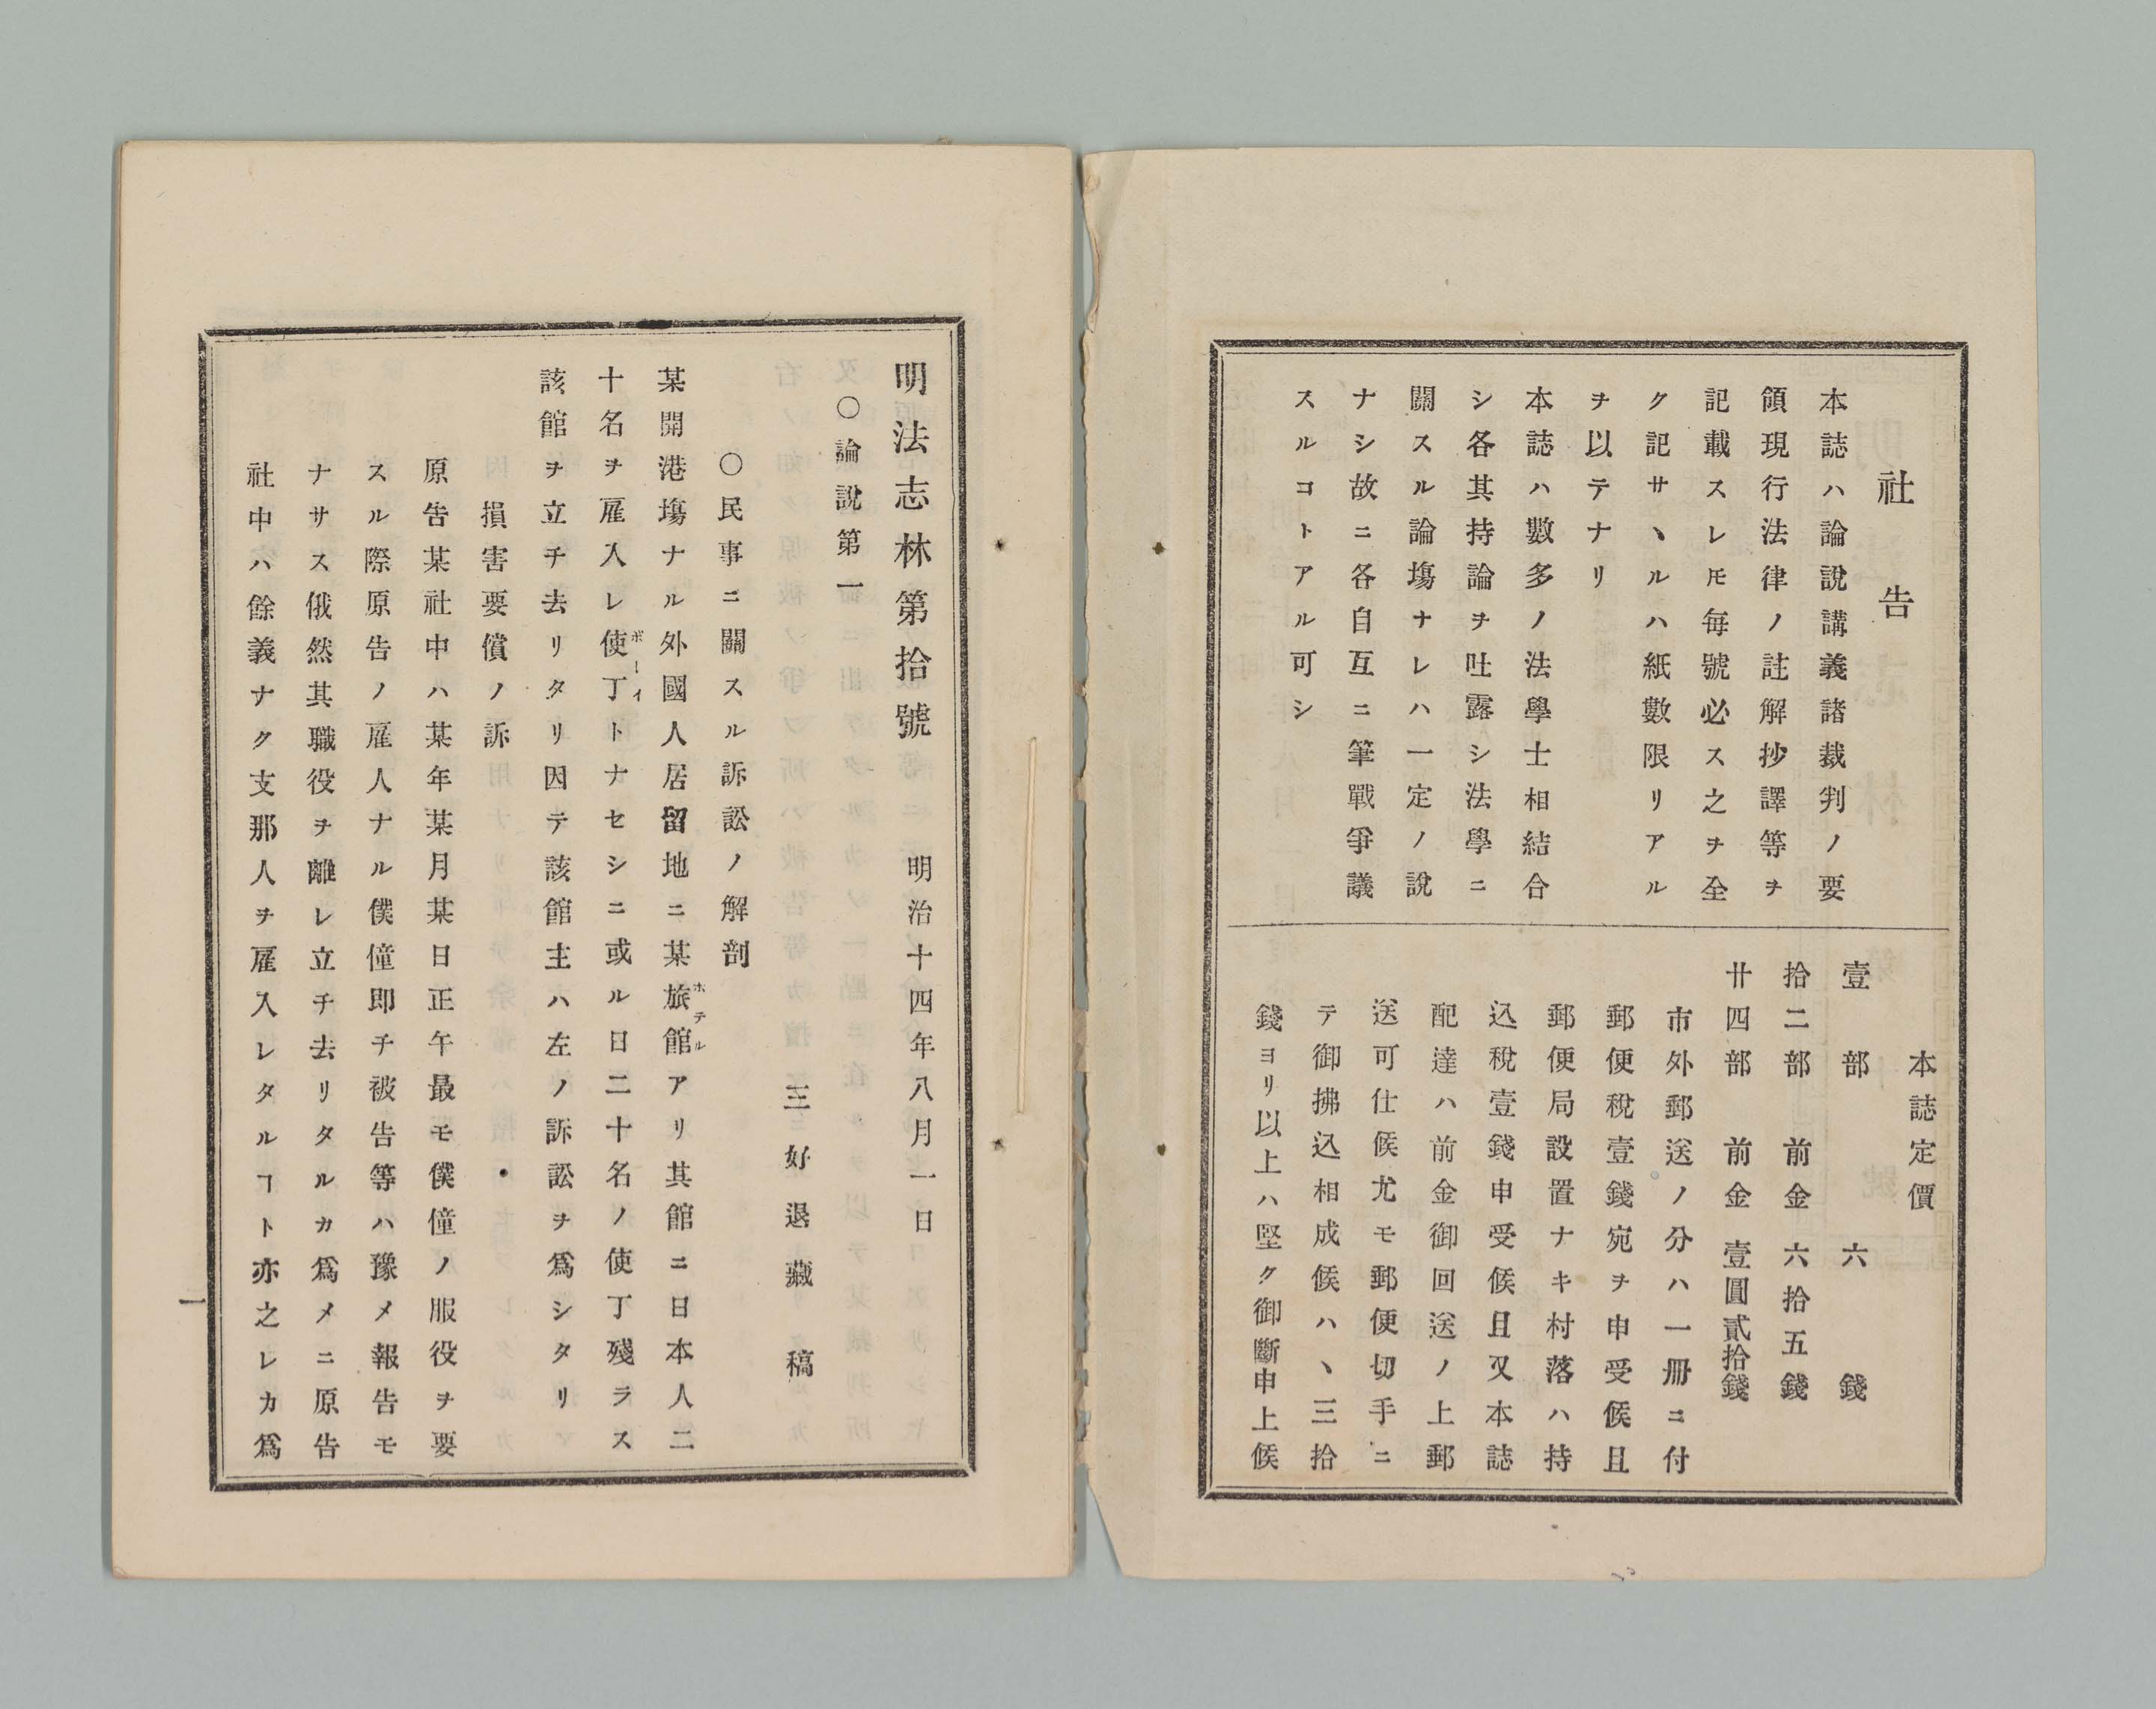 社告
本誌ハ論說講義諸裁判ノ要
領現行法律ノ註解抄譯等ヲ
記載スレ𪜈每號必ス之ヲ全
ク記サヽルハ紙數限リアル
ヲ以テナリ
本誌ハ數多ノ法學士相結合
シ各其持論ヲ吐露シ法學ニ
關スル論塲ナレハ一定ノ說
ナシ故ニ各自互ニ筆戰爭議
スルコトアル可シ
本誌定價
壹部 六錢
拾二部 前金 六拾五錢
廿四部 前金 壹圓貳拾錢
市外郵送ノ分ハ一冊ニ付
郵便稅壹錢宛ヲ申受候且
郵便局設置ナキ村落ハ持
込稅壹錢申受候且又本誌
配達ハ前金御回送ノ上郵
送可仕候尤モ郵便切手ニ
テ御拂込相成候ハヽ三拾
錢ヨリ以上ハ堅ク御斷申上候
明法志林第拾號 明治十四年八月一日
○論說第一
三好退藏稿
○民事ニ關スル訴訟ノ解剖
某開港塲ナル外國人居留地ニ某旅館ホテルアリ其館ニ日本人二
十名ヲ雇入レ使丁ボーイトナセシニ或ル日二十名ノ使丁殘ラス
該館ヲ立チ去リタリ因テ該館主ハ左ノ訴訟ヲ爲シタリ
損害要償ノ訴
原告某社中ハ某年某月某日正午最モ僕僮ノ服役ヲ要
スル際原告ノ雇人ナル僕僮即チ被告等ハ豫メ報告モ
ナサス俄然其職役ヲ離レ立チ去リタルカ爲メニ原告
社中ハ餘義ナク支那人ヲ雇入レタルヿト亦之レカ爲
一